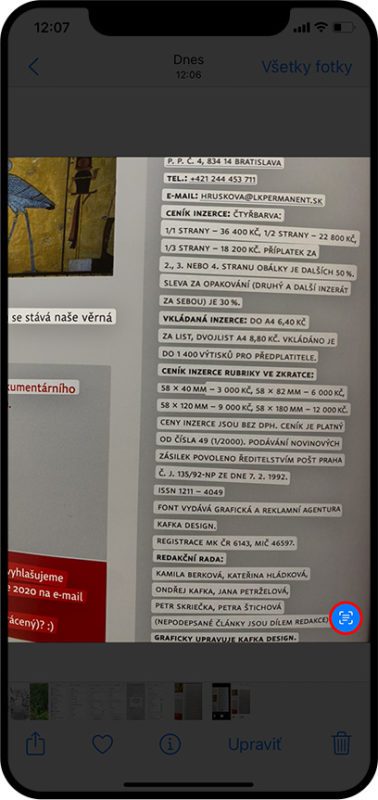 12:07
Dnes
12:06
Všetky fotky
P. P. Č. 4, 834 14 BRATISLAVA
TEL.: +421 244 453 711
E-MAIL: HRUSKOVA@LKPERMANENT.SK
CENÍK INZERCE: ČTYŘBARVA:
1/1 STRANY – 36 400 KČ, 1/2 STRANY – 22 800 KČ,
1/3 STRANY – 18 200 KČ. PŘÍPLATEK ZA
2., 3. NEBO 4. STRANU OBÁLKY JE DALŠÍCH 50 %.
SLEVA ZA OPAKOVÁNÍ (DRUHÝ A DALŠÍ INZERÁT
ZA SEBOU) JE 30 %.
VKLÁDANÁ INZERCE: DO A4 6,40 KČ
ZA LIST, DVOJLIST A4 8,80 KČ. VKLÁDÁNO JE
DO 1 400 VÝTISKŮ PRO PŘEDPLATITELE.
CENÍK INZERCE RUBRIKY VE ZKRATCE:
58 × 40 MM – 3 000 KČ, 58 × 82 MM – 6 000 KČ,
58 × 120 MM – 9 000 KČ, 58 × 180 MM – 12 000 KČ.
CENY INZERCE JSOU BEZ DPH. CENÍK JE PLATNÝ
OD ČÍSLA 49 (1/2000). PODÁVÁNÍ NOVINOVÝCH
ZÁSILEK POVOLENO ŘEDITELSTVÍM POŠT PRAHA
Č. J. 135/92-NP ZE DNE 7. 2. 1992.
ISSN 1211 – 4049
FONT VYDÁVÁ GRAFICKÁ A REKLAMNÍ AGENTURA
KAFKA DESIGN.
REGISTRACE MK ČR 6143, MIČ 46597.
REDAKČNÍ RADA:
KAMILA BERKOVÁ, KATEŘINA HLÁDKOVÁ,
ONDŘEJ KAFKA, JANA PETRŽELOVÁ,
PETR SKRIEČKA, PETRA ŠTICHOVÁ
(NEPODEPSANÉ ČLÁNKY JSOU DÍLEM REDAKCE)
GRAFICKY UPRAVUJE KAFKA DESIGN.
se stává naše věrná
kumentárního
vyhlašujeme
e 2020 na e-mail
rácený)? :)
Upraviť